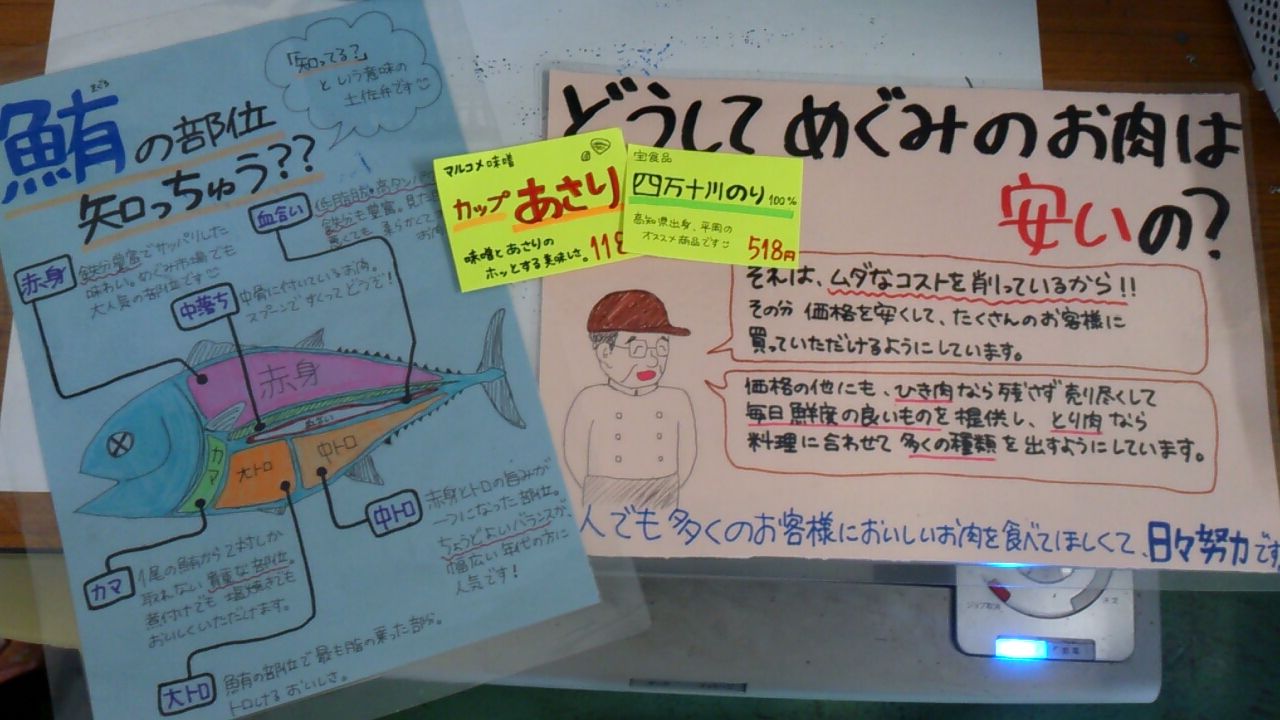 「知ってる?」
という意味の
土佐弁です
まぐろ
鮪の部位
知っちゅう??
血合い
低脂肪。高タン
鉄分も豊富。見た
赤身
鉄分豊富でサッパリした
味わい。めぐみ市場でも
大人気の部位です
中落ち
中骨に付いているお肉。
スプーンですくってどうぞ!
赤身
カマ
大トロ
中トロ
中トロ
赤身とトロの旨みが
一つになった部位。
ちょうどよいバランスが、
幅広い年代の方に
人気です!
カマ
1尾の鮪から2対しか
取れない貴重な部位。
煮付けでも塩焼きでも
おいしくいただけます。
大トロ
鮪の部位で最も脂の乗った部分。
トロけるおいしさ。
マルコメ味噌
カップあさり
味噌とあさりの
ホッとする美味しさ。118
宝食品
四万十川のり100%
高知県出身、平岡の
オススメ商品です
518円
どうしてめぐみのお肉は
安いの?
それは、ムダなコストを削っているから!!
その分 価格を安くして、たくさんのお客様に
買っていただけるようにしています。
価格の他にも、ひき肉なら残さず売り尽くして
毎日鮮度の良いものを提供し、とり肉なら
料理に合わせて多くの種類を出すようにしています。
人でも多くのお客様においしいお肉を食べてほしくて、日々努力です